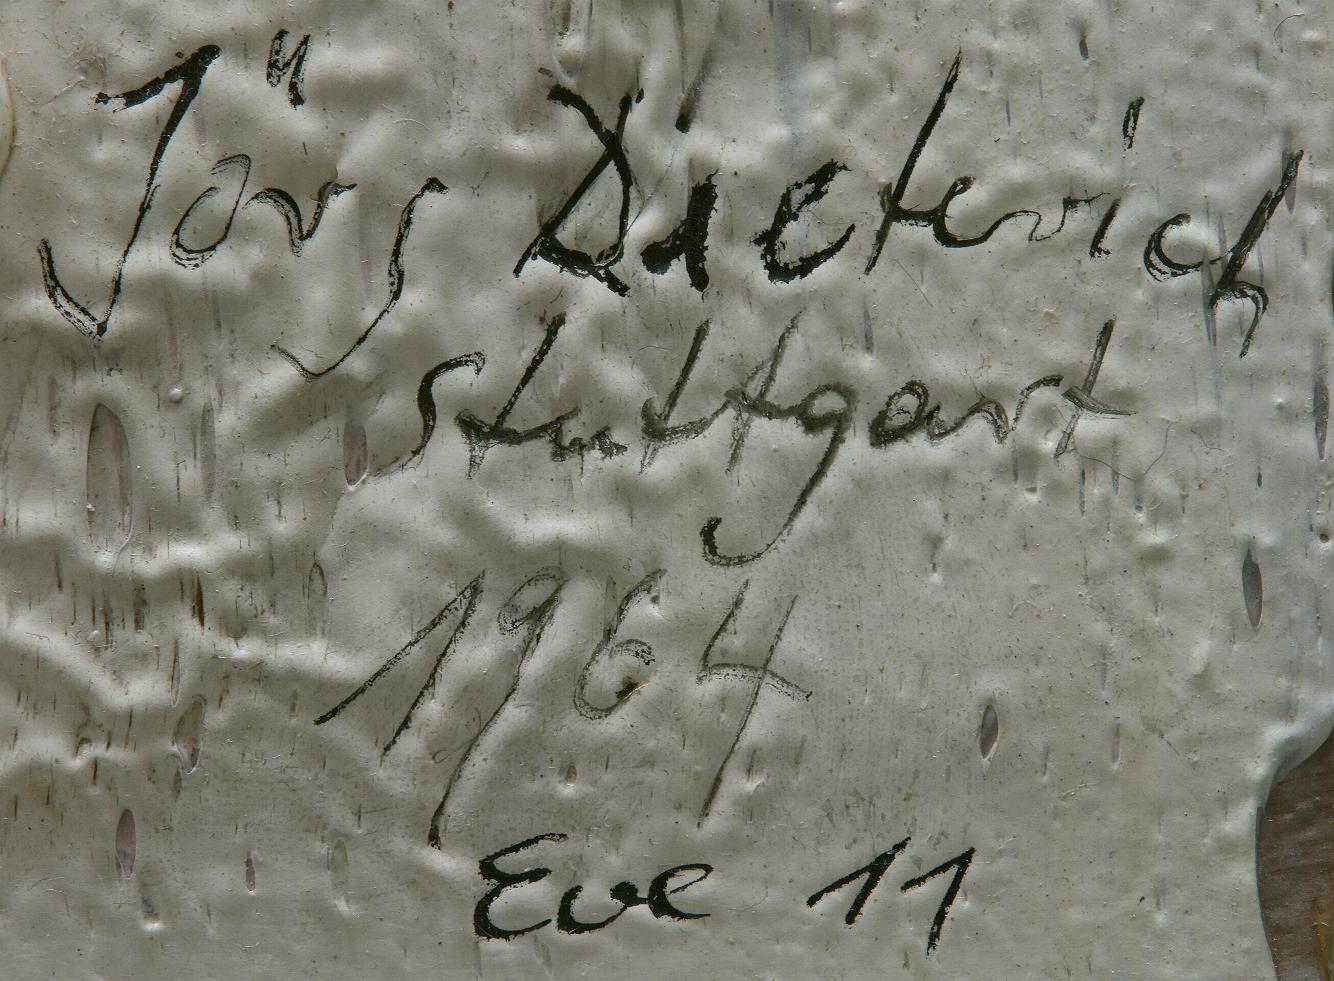 Jörg Dieterich
Stuttgart
1964
Eve 11